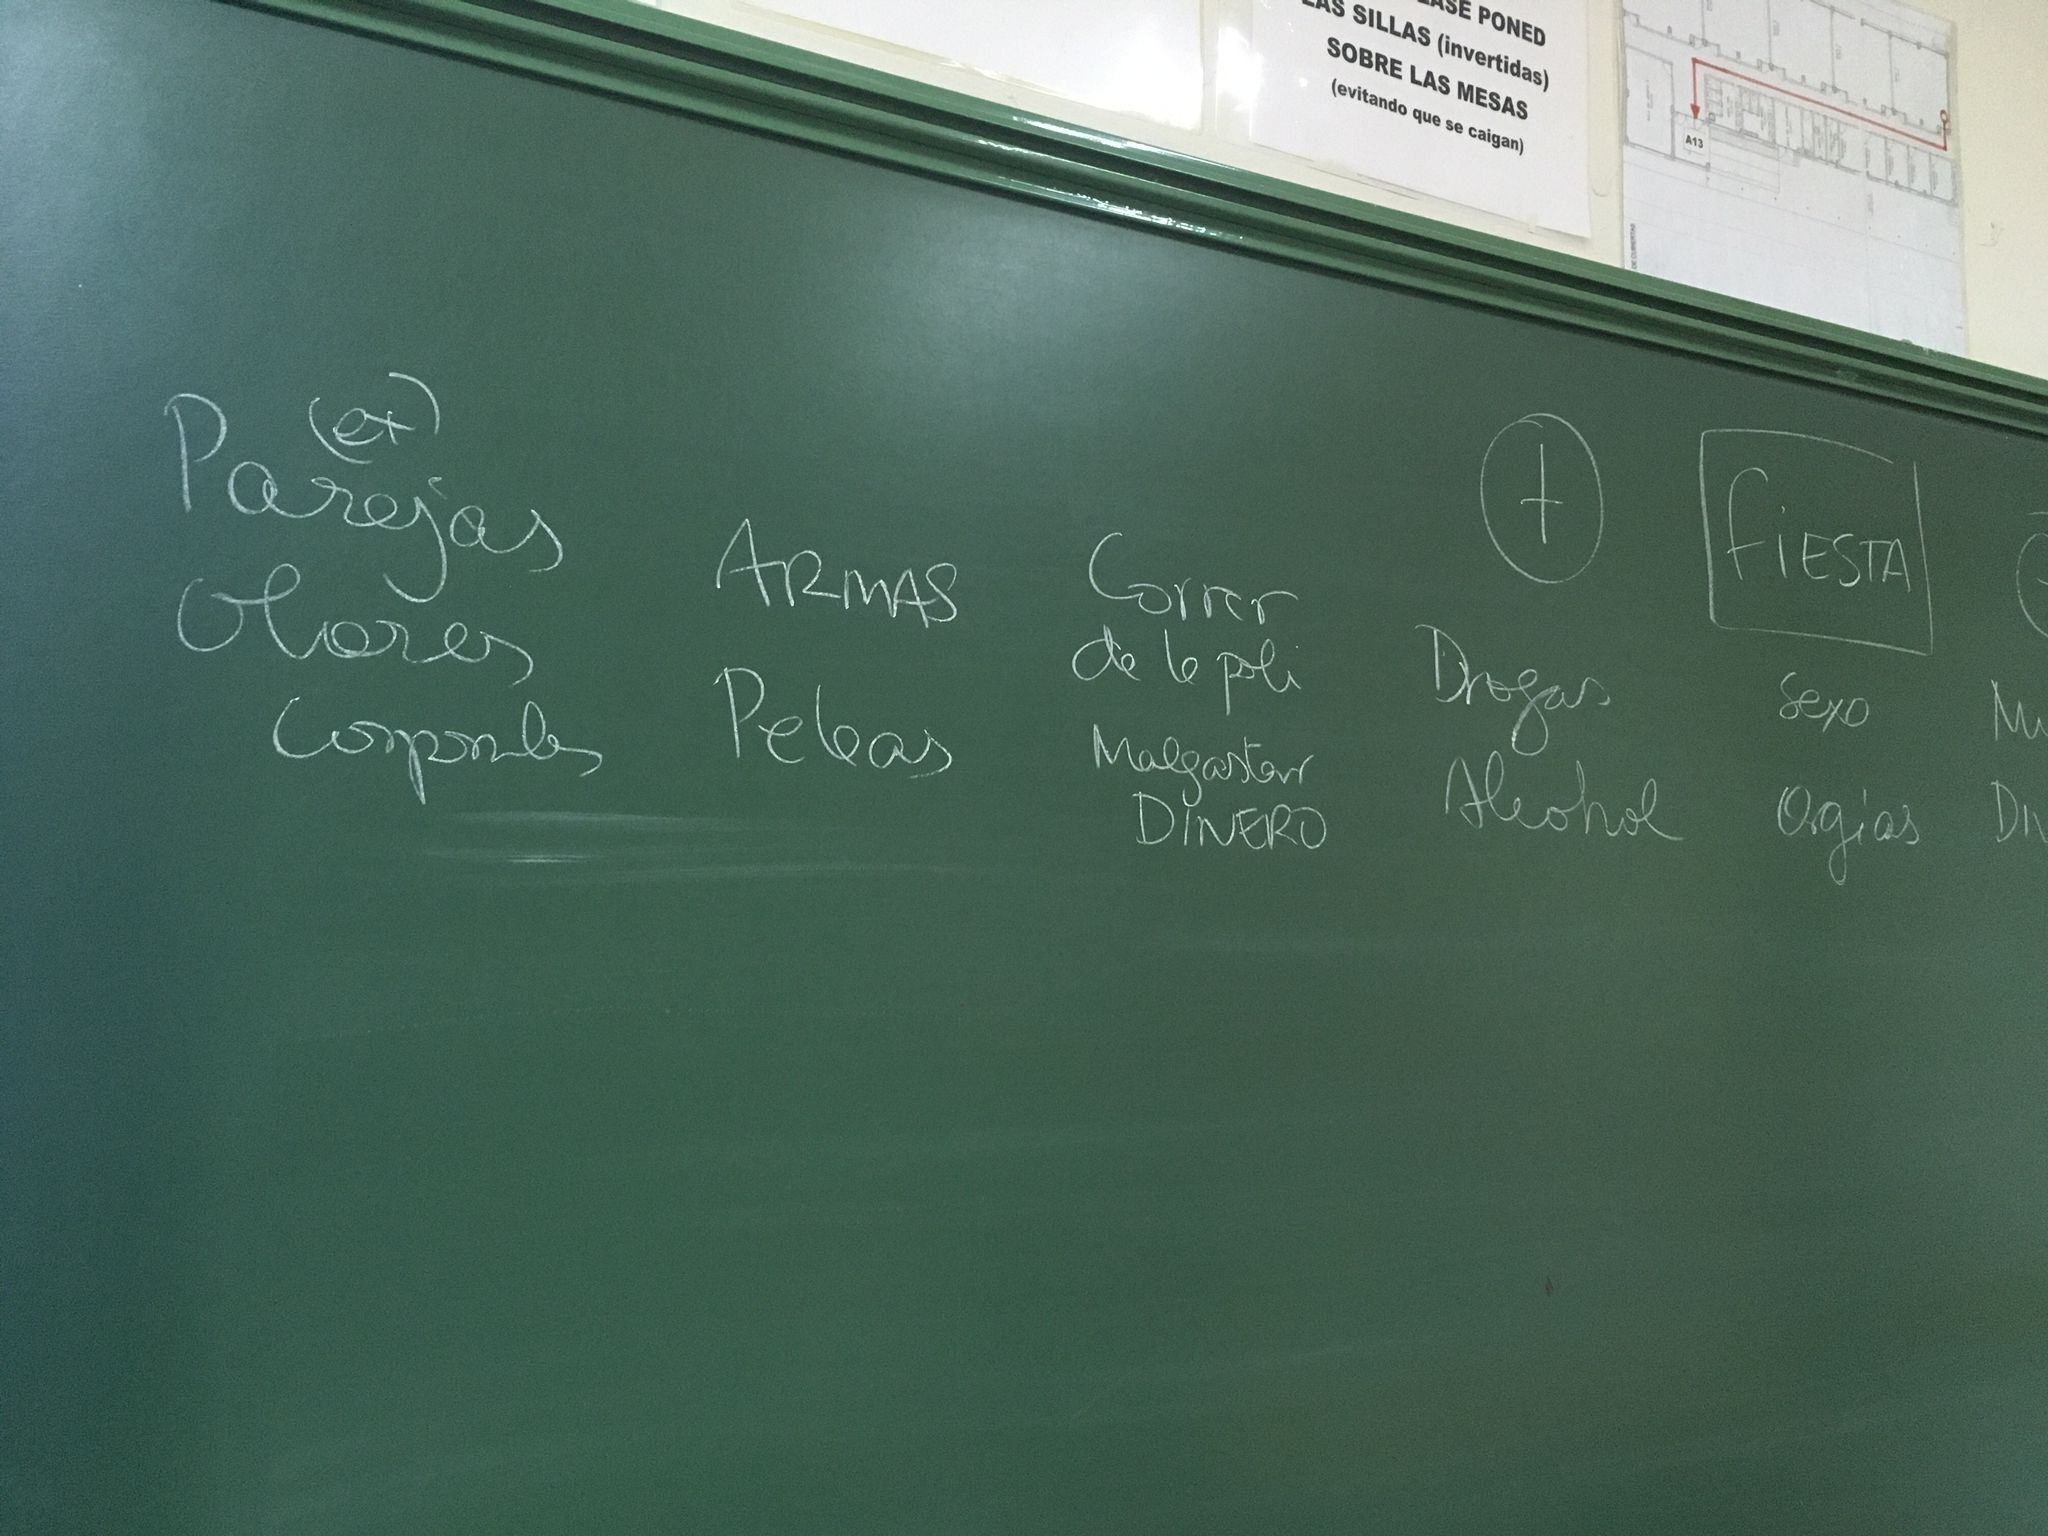 LAS SILLAS (invertidas)
SOBRE LAS MESAS
(evitando que se caigan)
A13
DE CUBIERTAS
(ex)
Parejas
Olores
Corporales
ARMAS
Peleas
Correr
de la poli
Malgastar
DINERO
+
Drogas
Alcohol
FiESTA
Sexo
Orgias